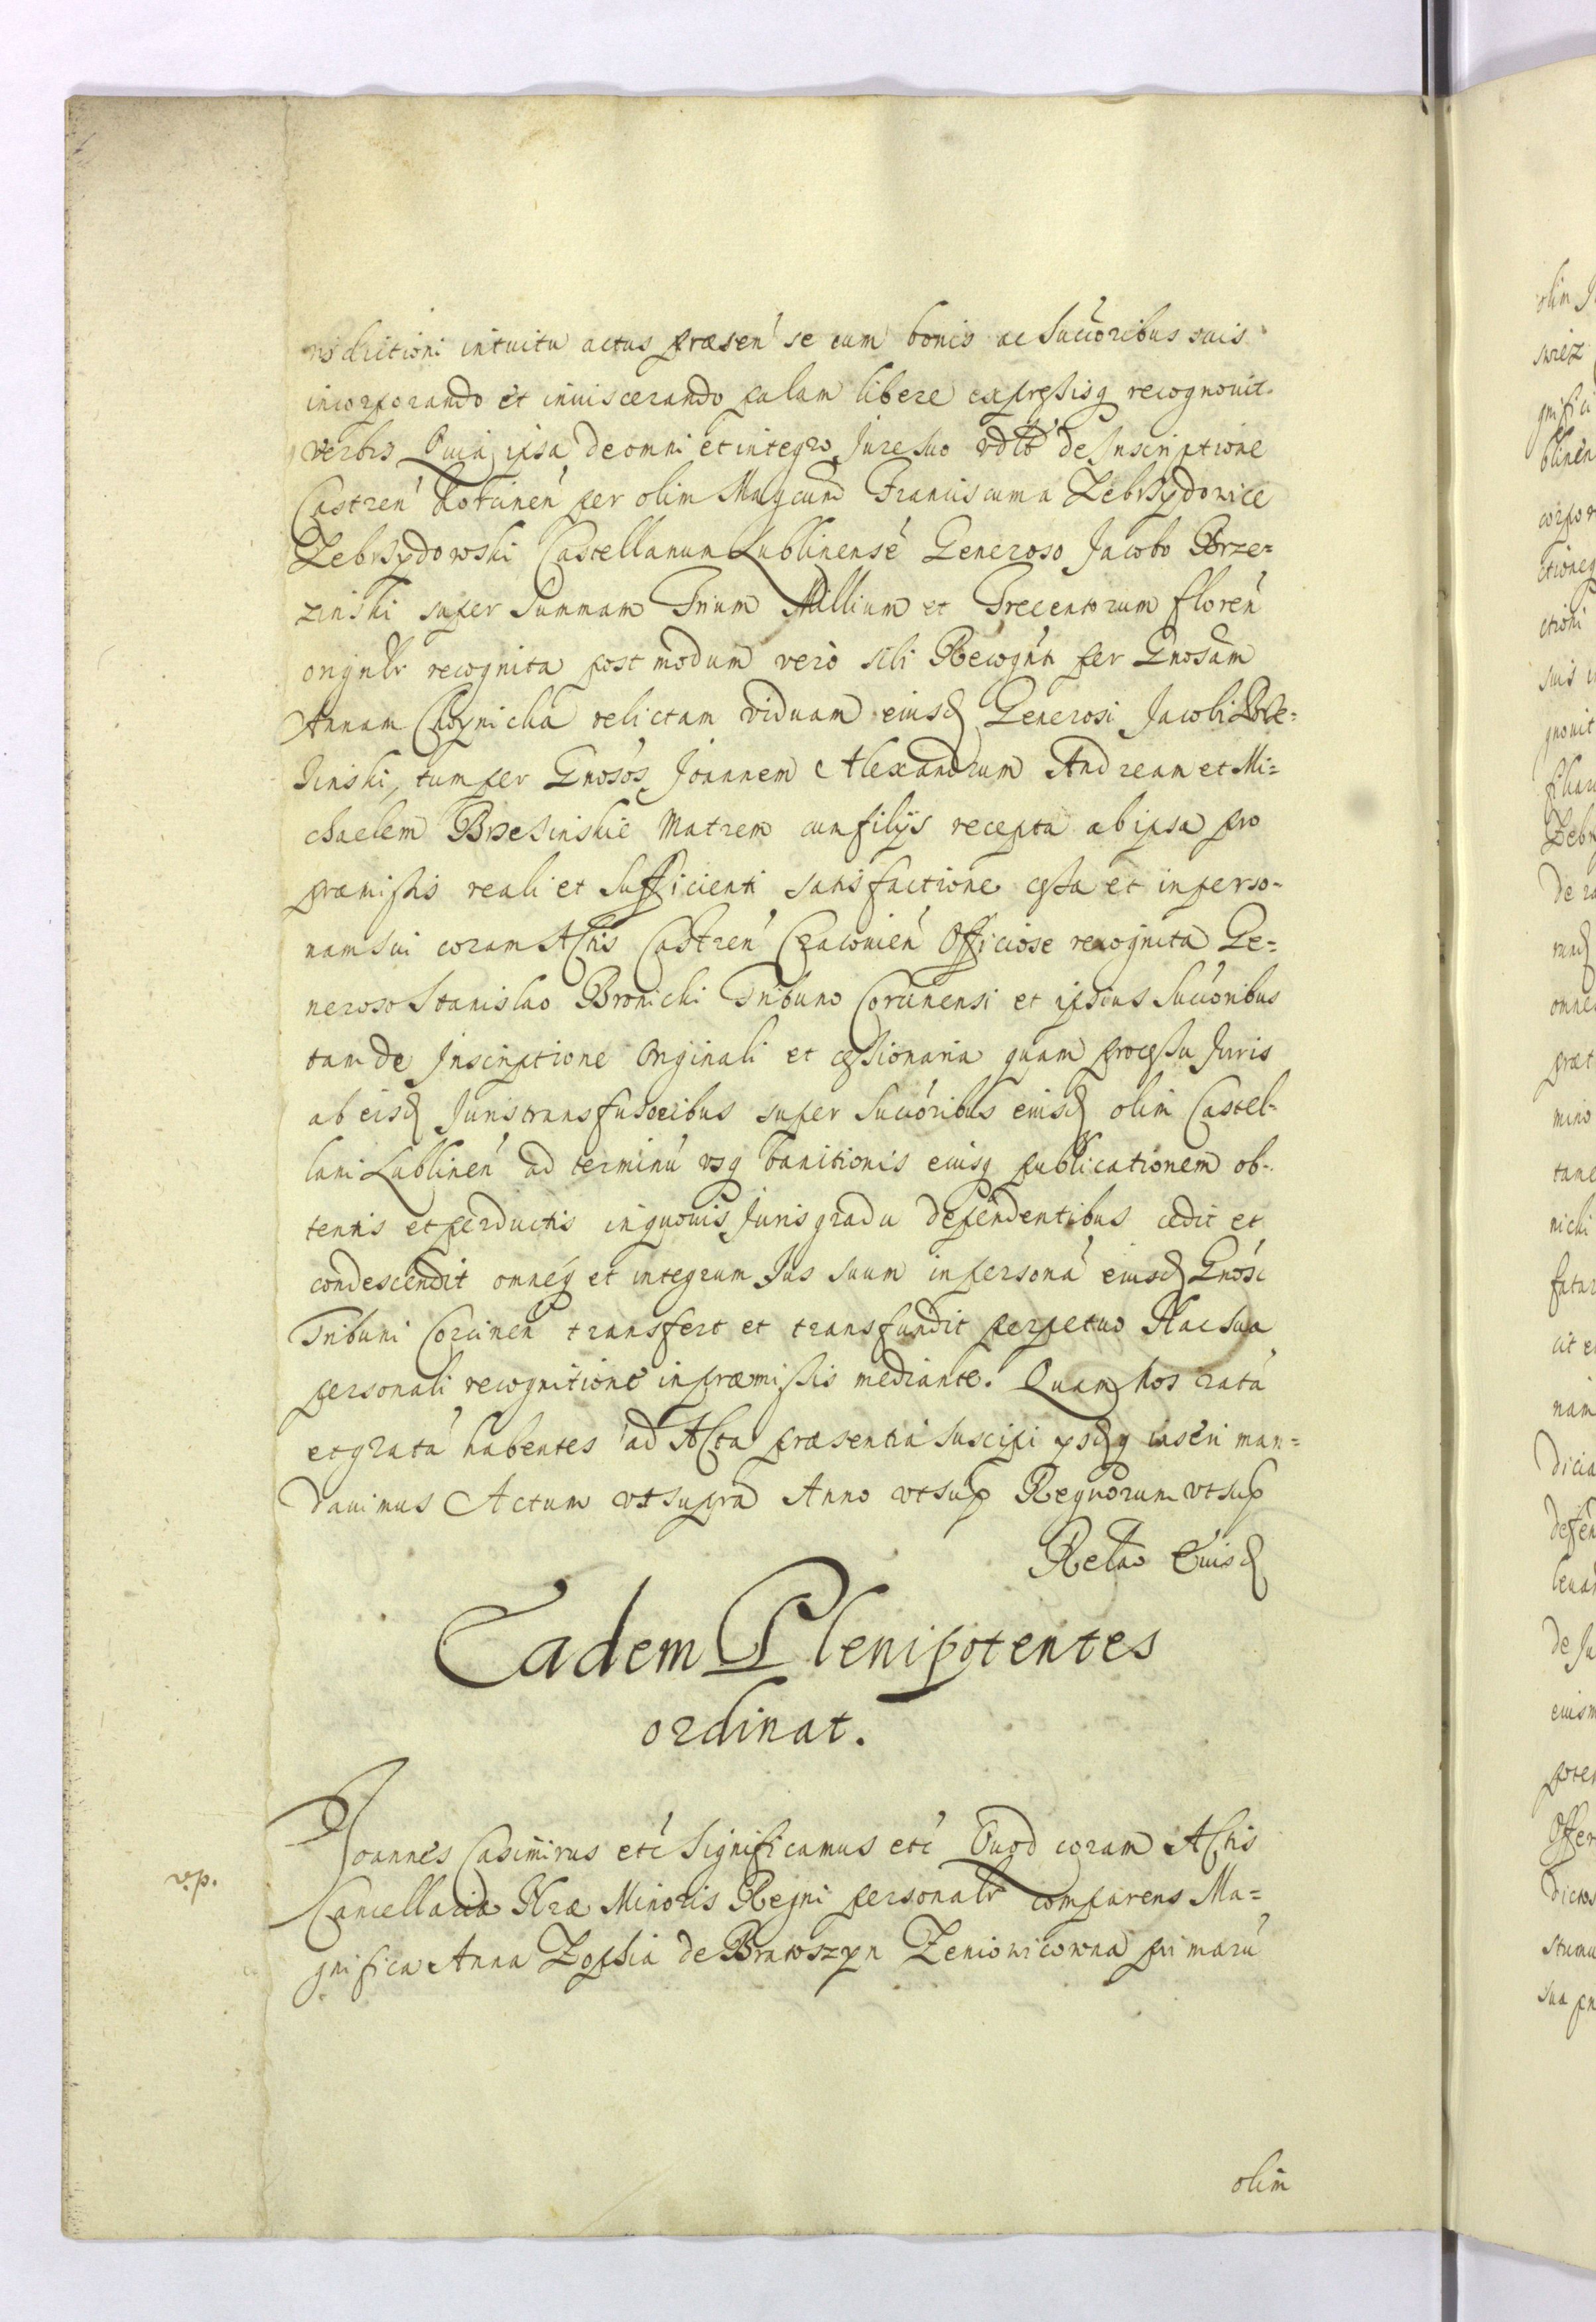 risdictioni intuitu actus præsen se cum bonis ac Succoribus suis
incorporando et inuiscerando palam libere expressisq recognouit
verbis Quia ipsa de omni et integro Jure suo vdlt de Inscriptione
Castren Korcinen per olim Magcum Franciscum a Zebrzydowice
Zebrzydowski Castellanum Lublinense Generoso Jacobo Brze=
zinski super Summam Trium Millium et Trecentorum floren
orignlr recognita post modum vero sibi Recognti per Gnosam
Annam Choynicka relictam viduam eiusd Generosi Jacobi Brze=
zinski, tum per Gnosos Joannem Alexandrum Andream et Mi=
chaelem Brzezinskie Matrem cum filijs recepta ab ipsa pro
præmissis reali et Sufficienti satisfactione cessa et in perso=
nam sui coram Actis Castren Cracouien Officiose recognita Ge=
neroso Stanislao Bronicki Tribuno Corcinensi et ipsius Succoribus
tam de Inscriptione Originali et cessionaria quam processu Juris
ab eisd Juris transfusoribus super Succoribus eiusd olim Castel=
lani Lublinen ad terminu vsq banitionis eiusq publicationem ob=
tentis et perductis in quouis Juris gradu dependentibus cedit et
condescendit omneq et integrum Jus suum in persona eiusd Gnosi
Tribuni Corcinen transfert et transfundit perpetuo Hac sua
personali recognitione in præmissis mediante. Quam Nos rata
et grata habentes ad Acta præsentia suscipi ysdq inseri man=
dauimus Actum vt supra Anno vt sup Regnorum vt sup
Relao Eiusd
Eadem Plenipotentes
ordinat.
Joannes Casimirus etc Significamus etc Quod coram Actis
v.p.
Cancellariæ Nræ Minoris Regni personalr comparens Ma=
gnifica Anna Zophia de Bratoszyn Zeniowicowna primaru
olim